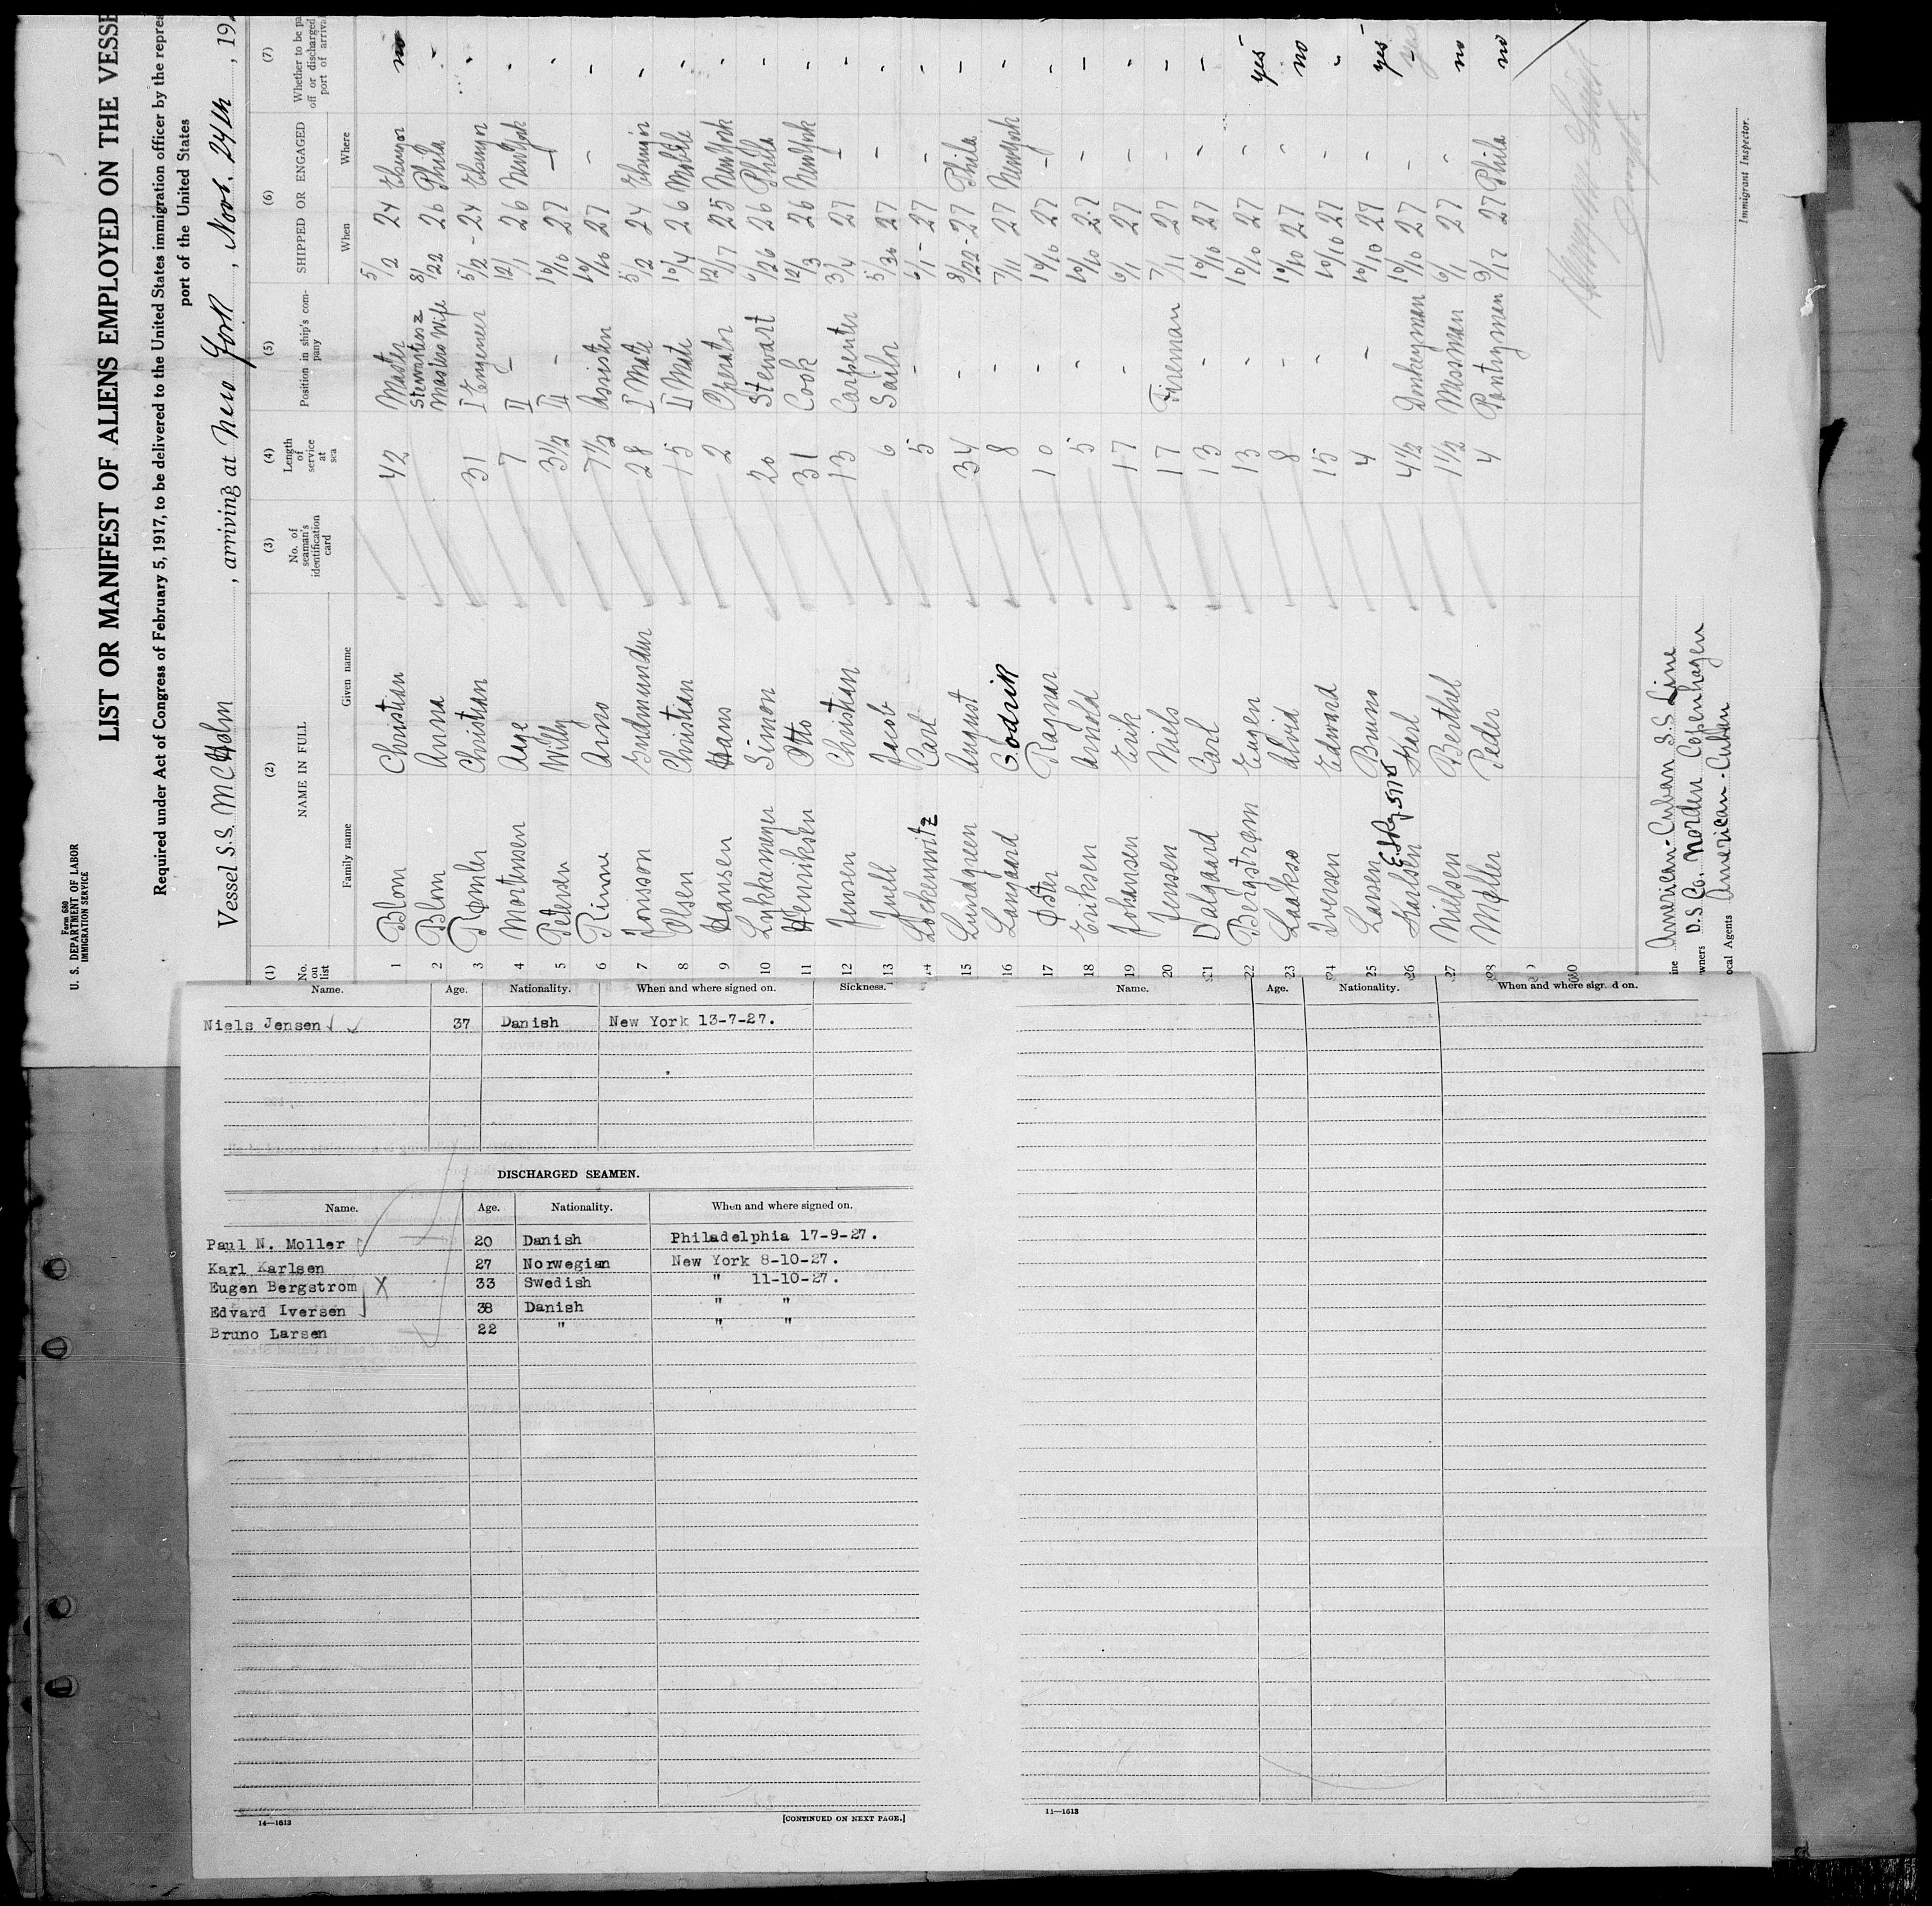 Form 680
U. S. DEPARTMENT OF LABOR
IMMIGRATION SERVICE
LIST OR MANIFEST OF ALIENS EMPLOYED ON THE VESSE
Required under Act of Congress of February 5, 1917, to be delivered to the United States immigration officer by the repres
port of the United States
Vessel S.S. M C Holm, arriving at New York, Nov. 24th, 192
(1) (2) (3) (4) (5) (6) (7)
No. on list NAME IN FULL No. of seaman's identification card Length of service at sea Position in ship's company SHIPPED OR ENGAGED Whether to be pa off or discharged port of arriva
Family name Given name When Where
1 Blom Christian 42 Master 5/2 24 no
2 Blom Anna Masters Wife 8/22 26 Phila "
3 Christian 31 I Engeneer 5/2 - 24 "
4 Mortensen Aage 7 II " 12/1 26 New York "
5 Petersen Willy 3½ III " 10/10 27 " "
6 Rinne Arno 7½ Assisten 10/10 27 " "
7 Jonsson Gudmundur 28 I Mate 5/2 24 "
8 Olsen Christian 15 II Mate 10/4 26 Mobile "
9 Hansen Hans 2 Operatr 12/7 25 New York "
10 Lykkemeyer Simon 20 Stewart 4/26 26 Phila "
11 Henriksen Otto 31 Cook 12/3 26 New York "
12 Jensen Christian 13 Carpenter 3/4 27 " "
13 Junell Jacob 6 Sailor 5/30 27 " "
14 Lockenwitz Carl 5 " 6/1 - 27 " "
15 Lundgreen August 34 " 8/22 - 27 Phila "
16 Langaard Godrik 8 " 7/11 27 New York "
17 Øster Ragnar 10 " 10/10 27 " "
18 Eriksen Arnold 5 " 10/10 27 " "
19 Johansen Erik 17 " 6/1 27 " "
20 Jensen Niels 17 Fireman 7/11 27 " "
21 Dalgaard Carl 13 " 10/10 27 " "
22 Bergstrøm Eugen 13 " 10/10 27 " yes
23 Laakso Alvid 8 " 10/10 27 " no
24 Iversen Edward 15 " 10/10 27 " "
25 Larsen Bruno 4 " 10/10 27 " yes
26 Karlsen Karl 4½ Donkeyman 10/10 27 " yes
27 Nielsen Berthel 1½ Messman 6/1 27 " no
28 Møller Peder 4 Pantryman 9/17 27 Phila no
30
ine American-Cuban S.S. Line
wners D.S Co. Norden Copenhagen
ocal Agents American-Cuban
Immigrant Inspector.
Name. Age. Nationality. When and where signed on. Sickness.
Niels Jensen 37 Danish New York 13-7-27.
DISCHARGED SEAMEN.
Name. Age. Nationality. When and where signed on.
Paul N. Moller 20 Danish Philadelphia 17-9-27.
Karl Karlsen 27 Norwegian New York 8-10-27.
Eugen Bergstrom X 33 Swedish " 11-10-27.
Edvard Iversen 38 Danish " "
Bruno Larsen 22 " " "
14—1613 [CONTINUED ON NEXT PAGE.]
Name. Age. Nationality. When and where signed on.
11—1613